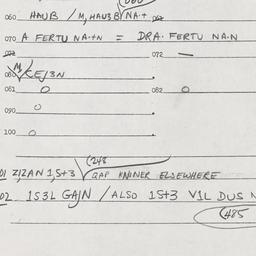 060 HAUB / M, HAU3B NA.+
070 A FERTU NA.+N = DRA. FERTU NA.N
072 072 —
080 M, CEJ3N
081 O 082 O
090 O
100 O
248
01 Z,ZAN 1,S+3 GAP KNINER ELSEWHERE
02 1S3L GAJN / ALSO 1S+3 V1L DUS
485